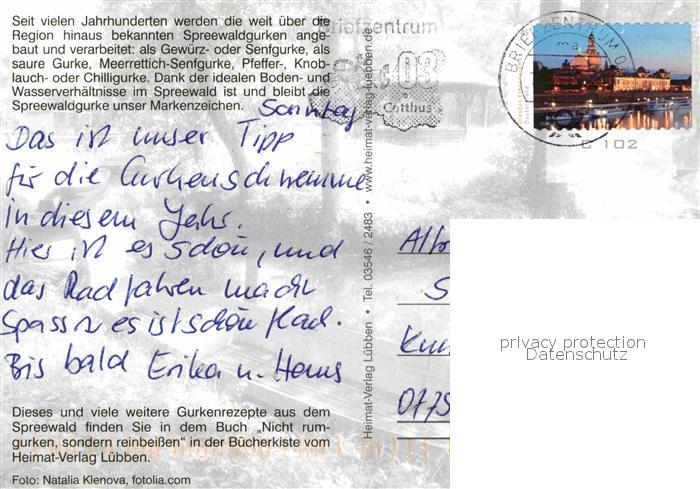 Seit vielen Jahrhunderten werden die weit über die
Region hinaus bekannten Spreewaldgurken ange-
baut und verarbeitet: als Gewürz- oder Senfgurke, als
saure Gurke, Meerrettich-Senfgurke, Pfeffer-, Knob-
lauch- oder Chilligurke. Dank der idealen Boden- und
Wasserverhältnisse im Spreewald ist und bleibt die
Spreewaldgurke unser Markenzeichen.
Sonntag
Das ist unser Tipp
für die Gurkenschwemme
in diesem Jahr.
Hier ist es schön, und
das Radfahren macht
Spass, es ist schön flach.
Bis bald Erika u. Hans
Dieses und viele weitere Gurkenrezepte aus dem
Spreewald finden Sie in dem Buch „Nicht rum-
gurken, sondern reinbeißen" in der Bücherkiste vom
Heimat-Verlag Lübben.
Foto: Natalia Klenova, fotolia.com
Heimat-Verlag Lübben • Tel. 03546 / 2483 • www.heimat-verlag-luebben.de
Briefzentrum
03
Cottbus
BRIEFZENTRUM 0
ma
C 102
S
0775
privacy protection
Datenschutz